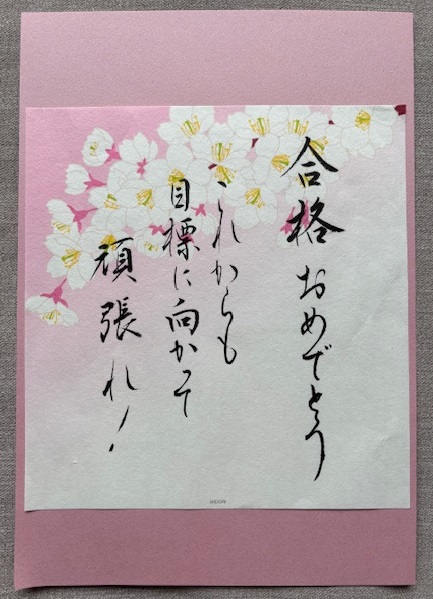 合格おめでとう
これからも
目標に向かって
頑張れ!